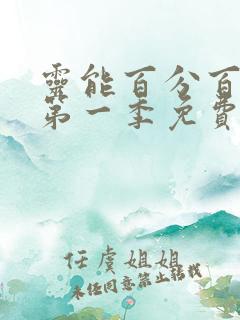 靈能百分百
第一季免費
任虞姐姐
未经同意禁止转载